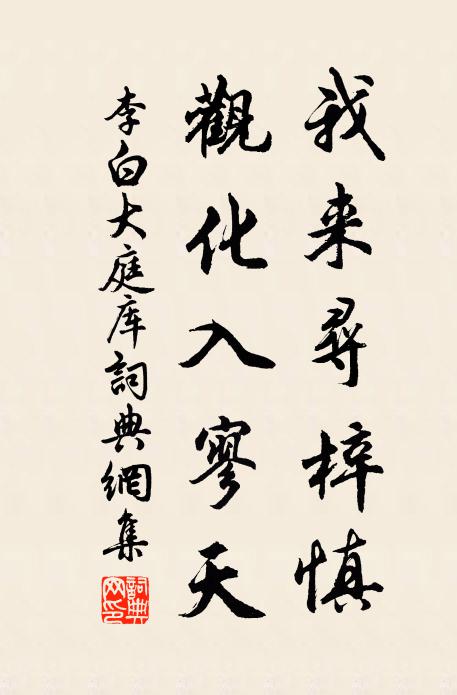 我来尋梓慎
觀化入寥天
李白大庭库詞典網集
詞典網印